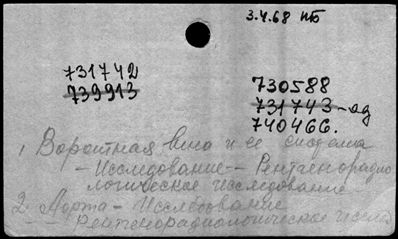 3.4.68 пБ
731742
739913
730588
731743-ад
740466.
1, Воротная вена и ее система
- Исследование - Рентгенорадио
логическое исследование
2. Аорта - Исследование
- Рентгенорадиологическое исслед